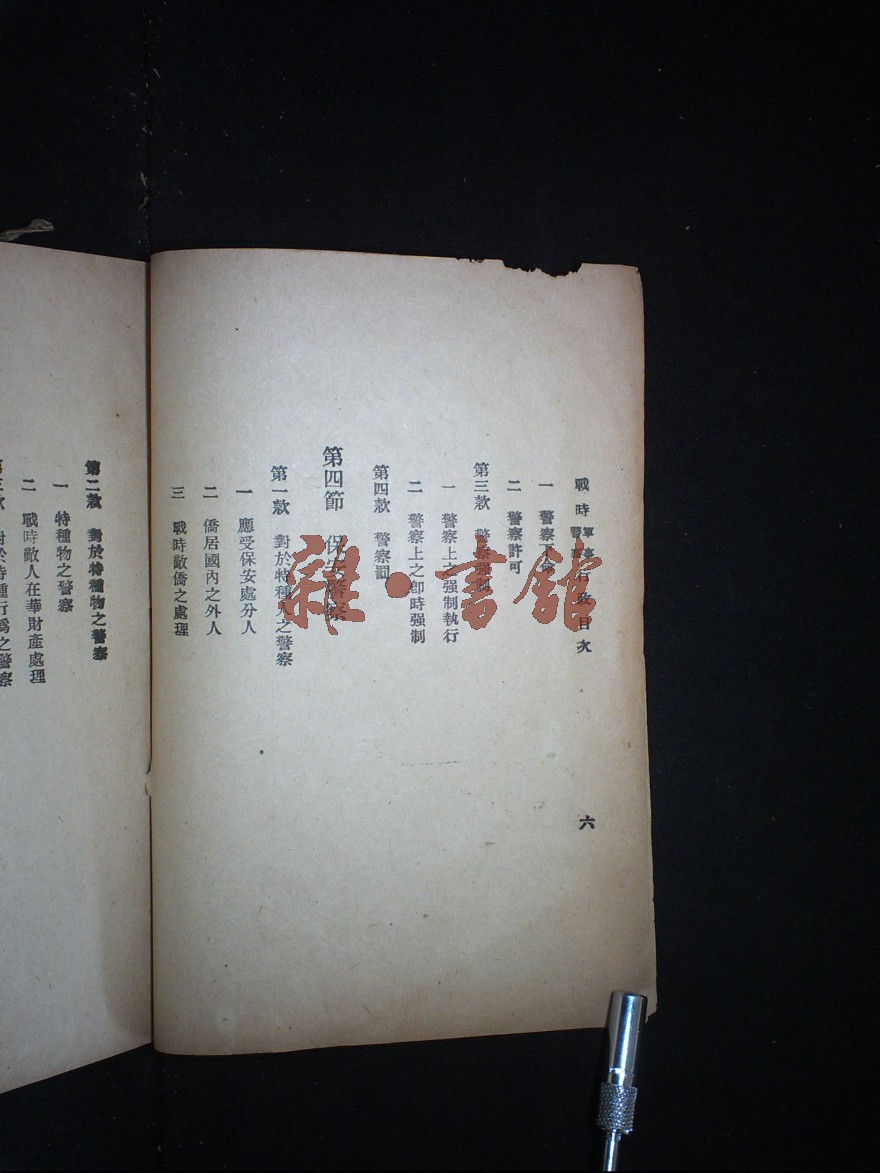 戰時軍事警察行政目次
一 警察下命
二 警察許可
第三款 警察强制
一 警察上之强制執行
二 警察上之卽時强制
第四款 警察罰
第四節 保安警察
第一款 對於特種人之警察
一 應受保安處分人
二 僑居國內之外人
三 戰時敵僑之處理
六
第二款 對於特種物之警察
一 特種物之警察
二 戰時敵人在華財產處理
第三款 對於特種行爲之警察
雜·書館